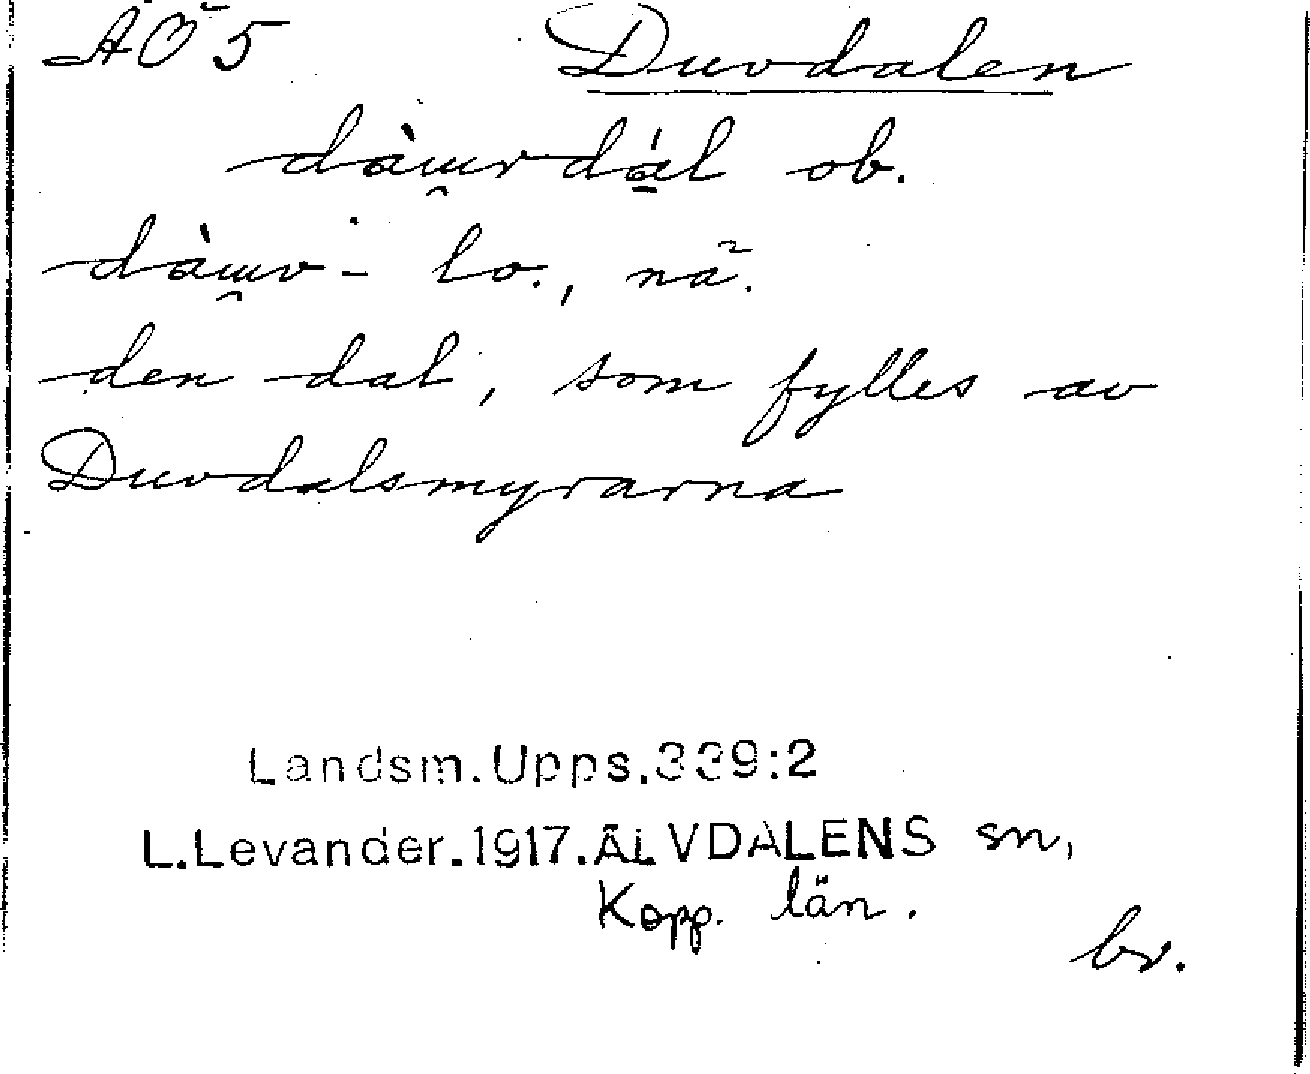 ÄÖ5 Duvdalen
dàɯvdál ob.
dàɯv- lo., nä.
den dal, som fylles av
Duvdalsmyrarna
Landsm.Upps.339:2
L.Levander.1917.ÄLVDALENS sn,
Kopp. län.
br.